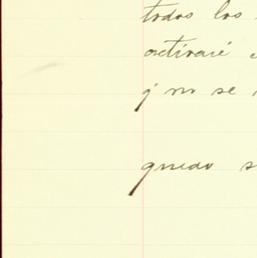 todos los
activaré
y no se
quedo s